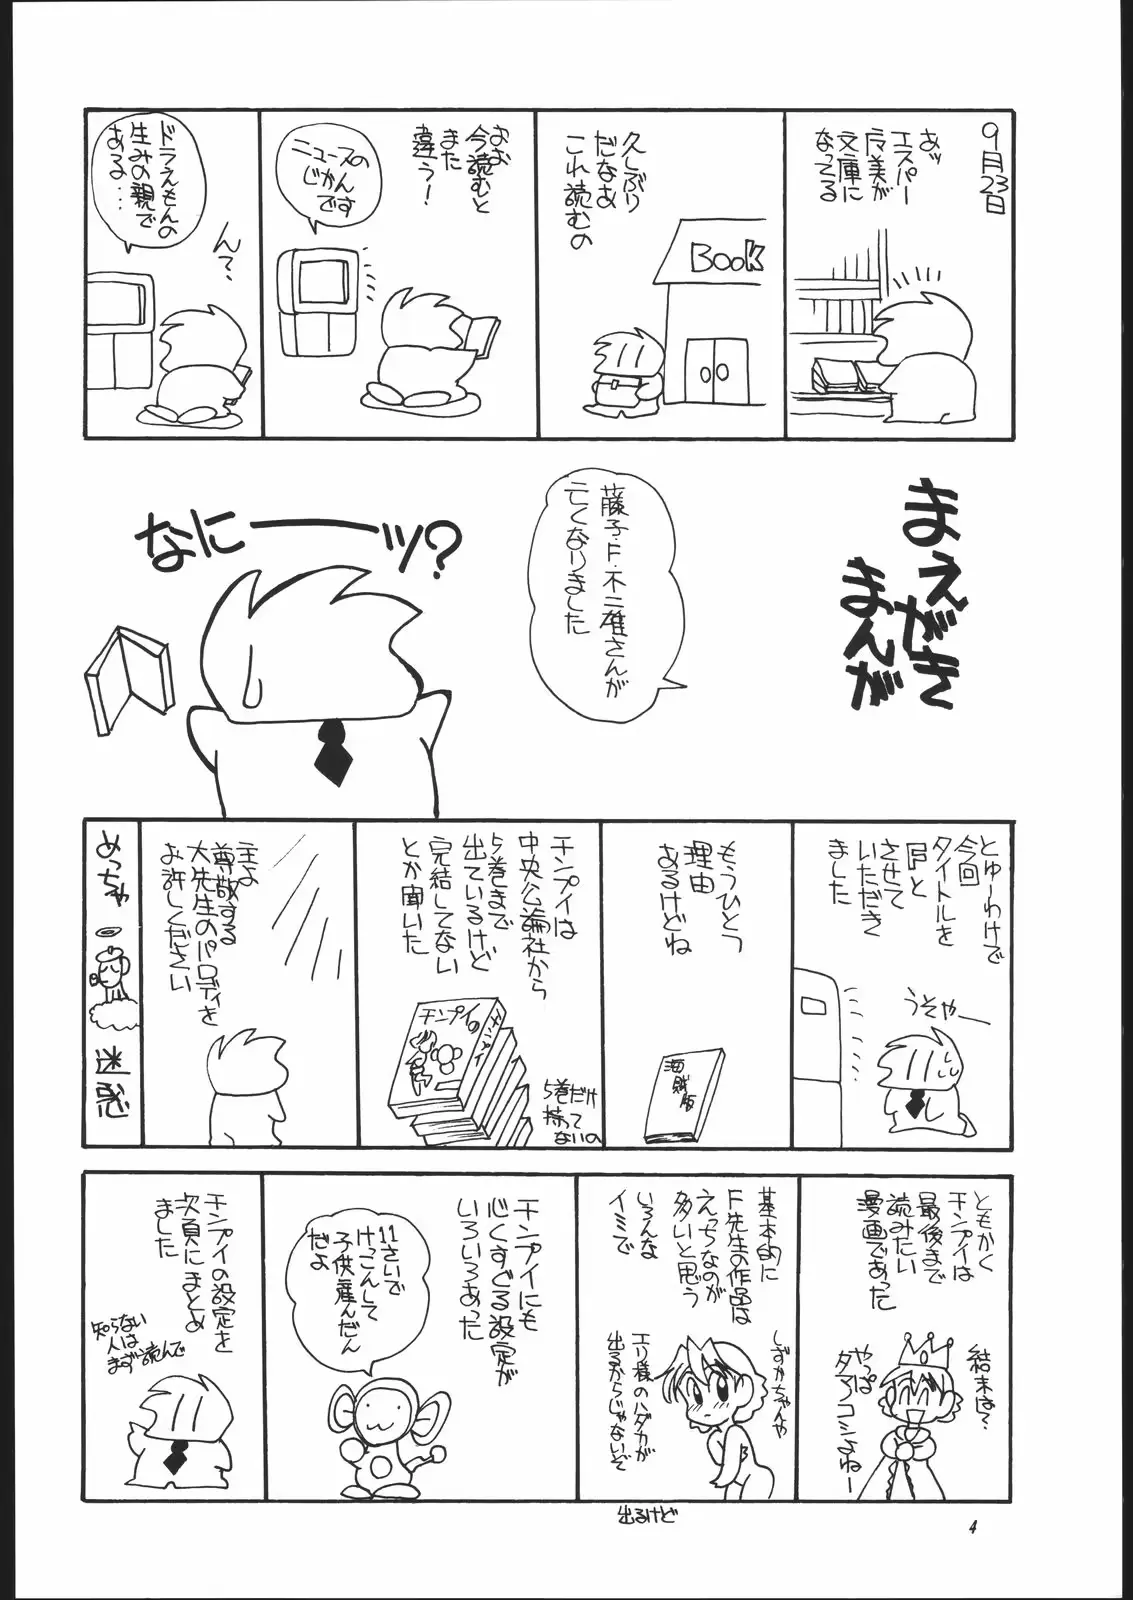 9月23日
あッ
エスパー
魔美が
文庫に
なってる
久しぶり
だなあ
これ読むの
Book
おお
今読むと
また
違う!
ニュースの
じかん
です
ドラえもんの
生みの親で
ある…
んて?
まえがき
まんが
藤子・F・不二雄さんが
亡くなりました
なにーーッ?
とゅーわけで
今回
タイトルを
『F』と
させて
いただき
ました
うそやー
もうひとつ
理由
あるけどね
海賊版
チンプイは
中央公論社から
5巻まで
出ているけど
完結してない
とか聞いた
チンプイ
チンプイ
5巻だけ
持って
ないの
主よ
尊敬する
大先生のパロディを
お許しください
めっちゃ
迷惑
ともかく
チンプイは
最後まで
読みたい
漫画であった
結末は?
やっぱ
タマコシよねー
基本的に
F先生の作品は
えっちなのが
多いと思う
いろんな
イミで
しずかちゃんや
エリ様のハダカが
出るからじゃないぞ
出るけど
チンプイにも
心くすぐる設定が
いろいろあった
11さいで
けっこんして
子供産んだん
だよ
チンプイの設定を
次頁にまとめ
ました
知らない
人は
まず読んで
4